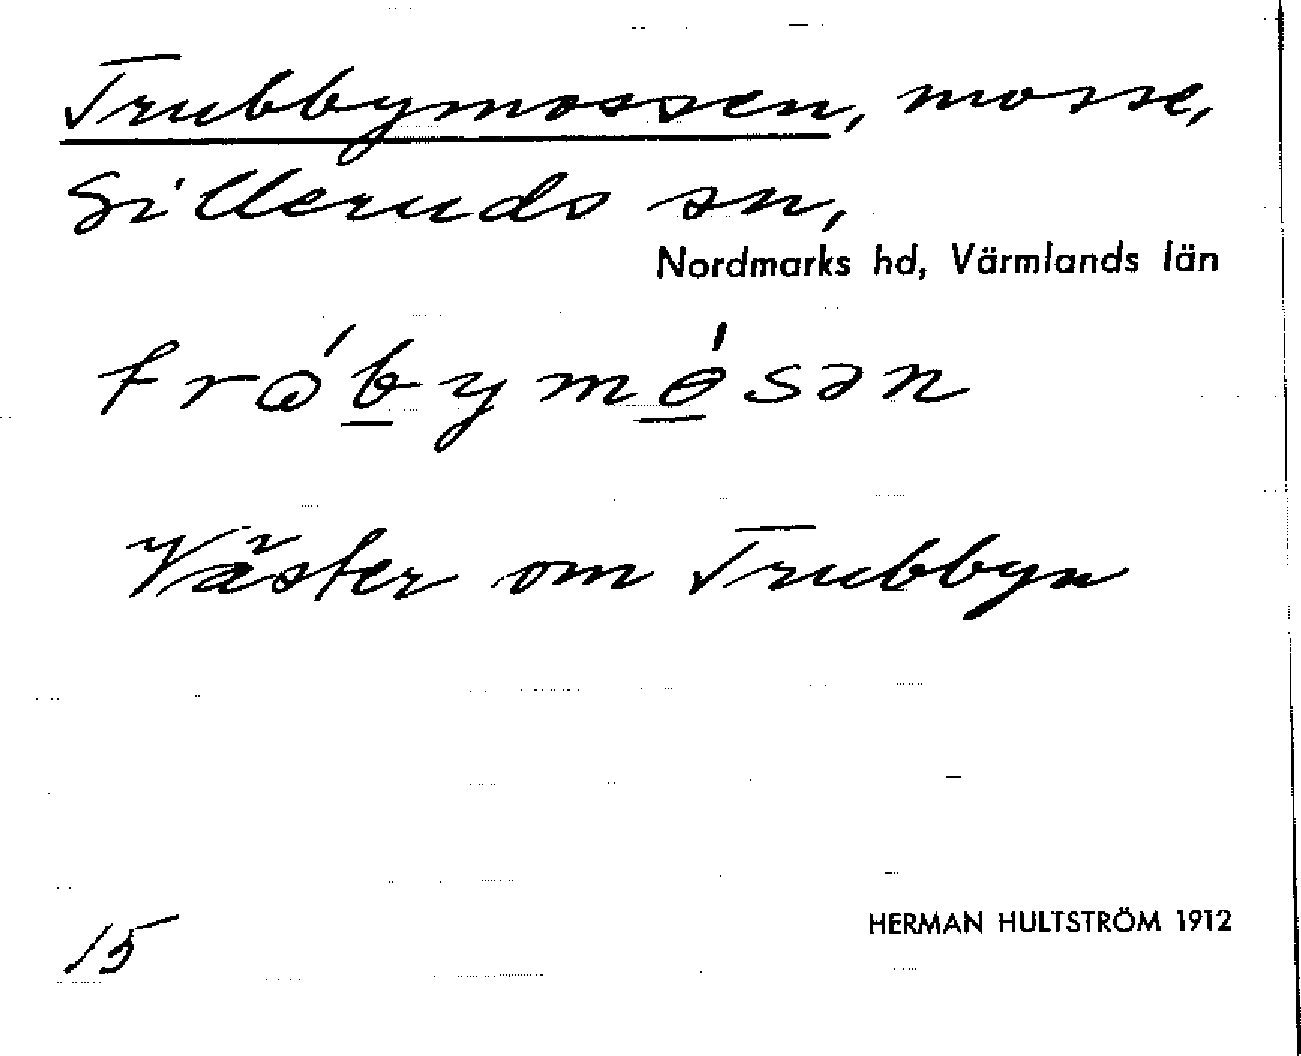 Trubbymossen, mosse,
Silleruds sn,
Nordmarks hd, Värmlands län
Väster om Trubbyn
15
HERMAN HULTSTRÖM 1912